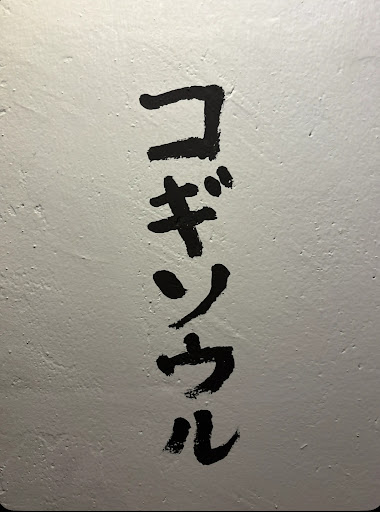 コギソウル